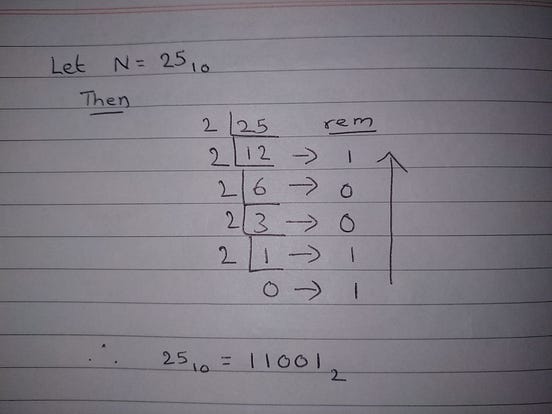 Let N = 25₁₀
Then
2 | 25 rem
2 | 12 → 1
2 | 6 → 0
2 | 3 → 0
2 | 1 → 1
0 → 1
∴ 25₁₀ = 11001₂